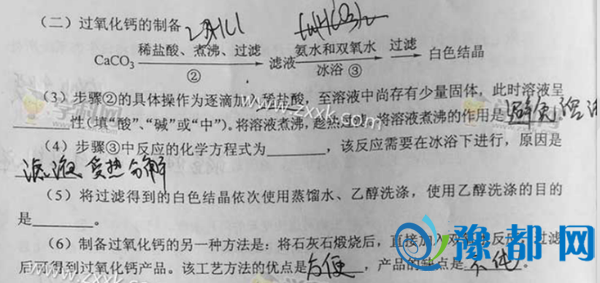 (二)过氧化钙的制备
CaCO₃ 稀盐酸、煮沸、过滤 ② 滤液 氨水和双氧水 冰浴 ③ 过滤 白色结晶
(3)步骤②的具体操作为逐滴加入稀盐酸,至溶液中尚存有少量固体,此时溶液呈
性(填“酸”、“碱”或“中”)。将溶液煮沸,趁热过滤,将溶液煮沸的作用是 避免溶
(4)步骤③中反应的化学方程式为______,该反应需要在冰浴下进行,原因是
滤液受热分解
(5)将过滤得到的白色结晶依次使用蒸馏水、乙醇洗涤,使用乙醇洗涤的目的
是______。
(6)制备过氧化钙的另一种方法是:将石灰石煅烧后,直接加入双氧水反应,过滤
后可得到过氧化钙产品。该工艺方法的优点是方便,产品的缺点是不纯。
www.zxxk.com
豫都网